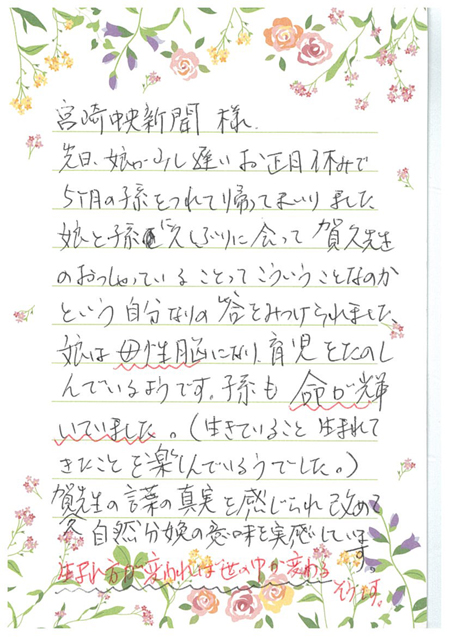 宮崎中央新聞 様
先日、娘が少し遅いお正月休みで
5ヶ月の子孫をつれて帰ってまいりました
娘と子孫に久しぶりに会って 賀久先生
のおっしゃっていることってこういうことなのか
という自分なりの答をみつけられました。
娘は母性脳になり、育児をたのし
んでいるようです。子孫も 命が輝
いていました。(生きていること 生まれて
きたことを楽しんでいるうでした。)
賀久先生の言葉の真実を感じられ 改めて
自然分娩の意味を実感しています。
生まれ方が変われば世の中が変わる
そうです。